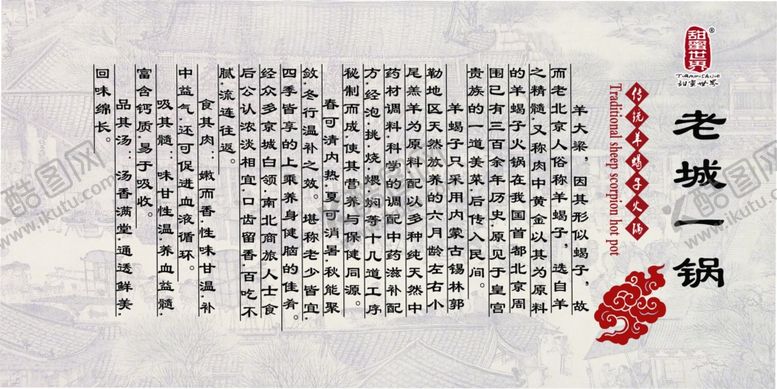 甜蜜世界
®
甜蜜世界
老城一锅
传统羊蝎子火锅
Traditional sheep scorpion hot pot
羊大梁，因其形似蝎子，故
而老北京人俗称羊蝎子，选自羊
之精髓，又称肉中黄金以其为原料
的羊蝎子火锅在我国首都北京周
围已有三百余年历史，原见于皇宫
贵族的一道美菜，后传入民间。
羊蝎子只采用内蒙古锡林郭
勒地区天然放养的六月龄左右小
尾羔羊为原料配以多种纯天然中
药材调料科学的调配中药滋补配
方，经泡、挑、烧、煨、焖等十几道工序
秘制而成，使其营养与保健同源。
春可清内热，夏可消暑，秋能聚
敛，冬行温补之效。堪称老少皆宜，
四季皆享的上乘养身健脑的佳肴。
经众多京城白领，南北商旅人士食
后公认浓淡相宜，口齿留香百吃不
腻，流连往返。
食其肉：嫩而香，性味甘温，补
中益气，还可促进血液循环。
吸其髓：味甘性温，养血益髓，
富含钙质，易于吸收。
品其汤：汤香满堂，通透鲜美，
回味绵长。
酷图网
www.ikutu.com